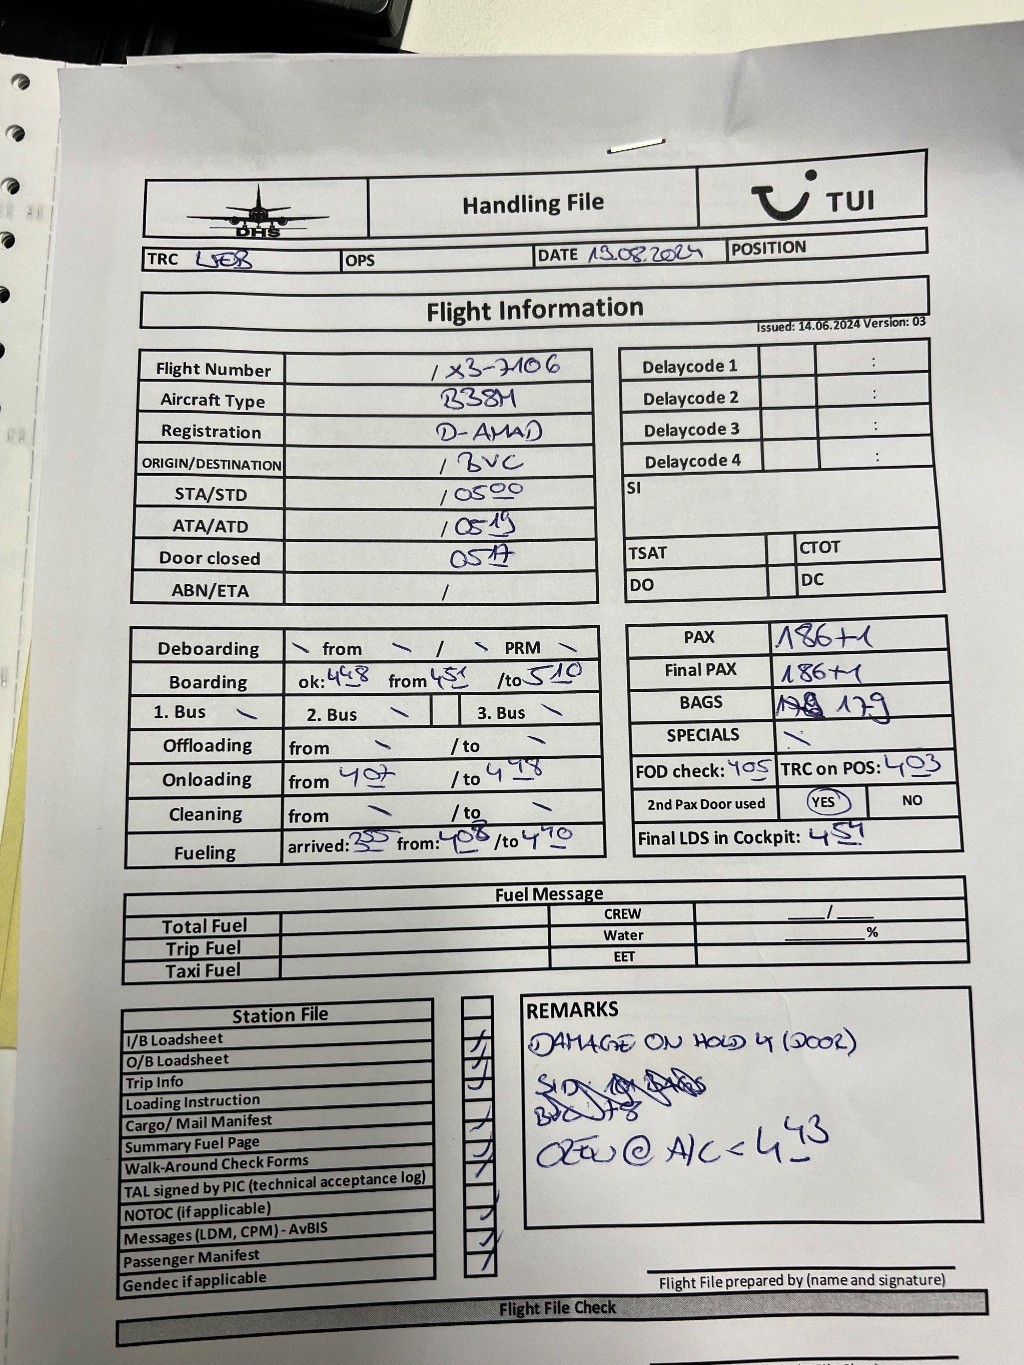 DHS
Handling File
TUI
TRC WEB OPS DATE 13.08.2024 POSITION
Flight Information
Issued: 14.06.2024 Version: 03
Flight Number / X3-7106
Aircraft Type B38M
Registration D-AMAD
ORIGIN/DESTINATION / BVC
STA/STD / 0500
ATA/ATD / 0519
Door closed 0517
ABN/ETA /
Delaycode 1 :
Delaycode 2 :
Delaycode 3 :
Delaycode 4 :
SI
TSAT CTOT
DO DC
Deboarding \ from \ / \ PRM \
Boarding ok: 448 from 451 /to 510
1. Bus \ 2. Bus \ 3. Bus \
Offloading from \ / to \
Onloading from 407 / to 448
Cleaning from \ / to \
Fueling arrived: 355 from: 408 /to 440
PAX 186+1
Final PAX 186+1
BAGS 179
SPECIALS \
FOD check: 405 TRC on POS: 403
2nd Pax Door used YES NO
Final LDS in Cockpit: 454
Fuel Message
Total Fuel CREW ___/___
Trip Fuel Water ______%
Taxi Fuel EET
Station File
I/B Loadsheet
O/B Loadsheet
Trip Info
Loading Instruction
Cargo/ Mail Manifest
Summary Fuel Page
Walk-Around Check Forms
TAL signed by PIC (technical acceptance log)
NOTOC (if applicable)
Messages (LDM, CPM) - AvBIS
Passenger Manifest
Gendec if applicable
REMARKS
DAMAGE ON HOLD 4 (DOOR)
CREW @ A/C = 443
Flight File prepared by (name and signature)
Flight File Check